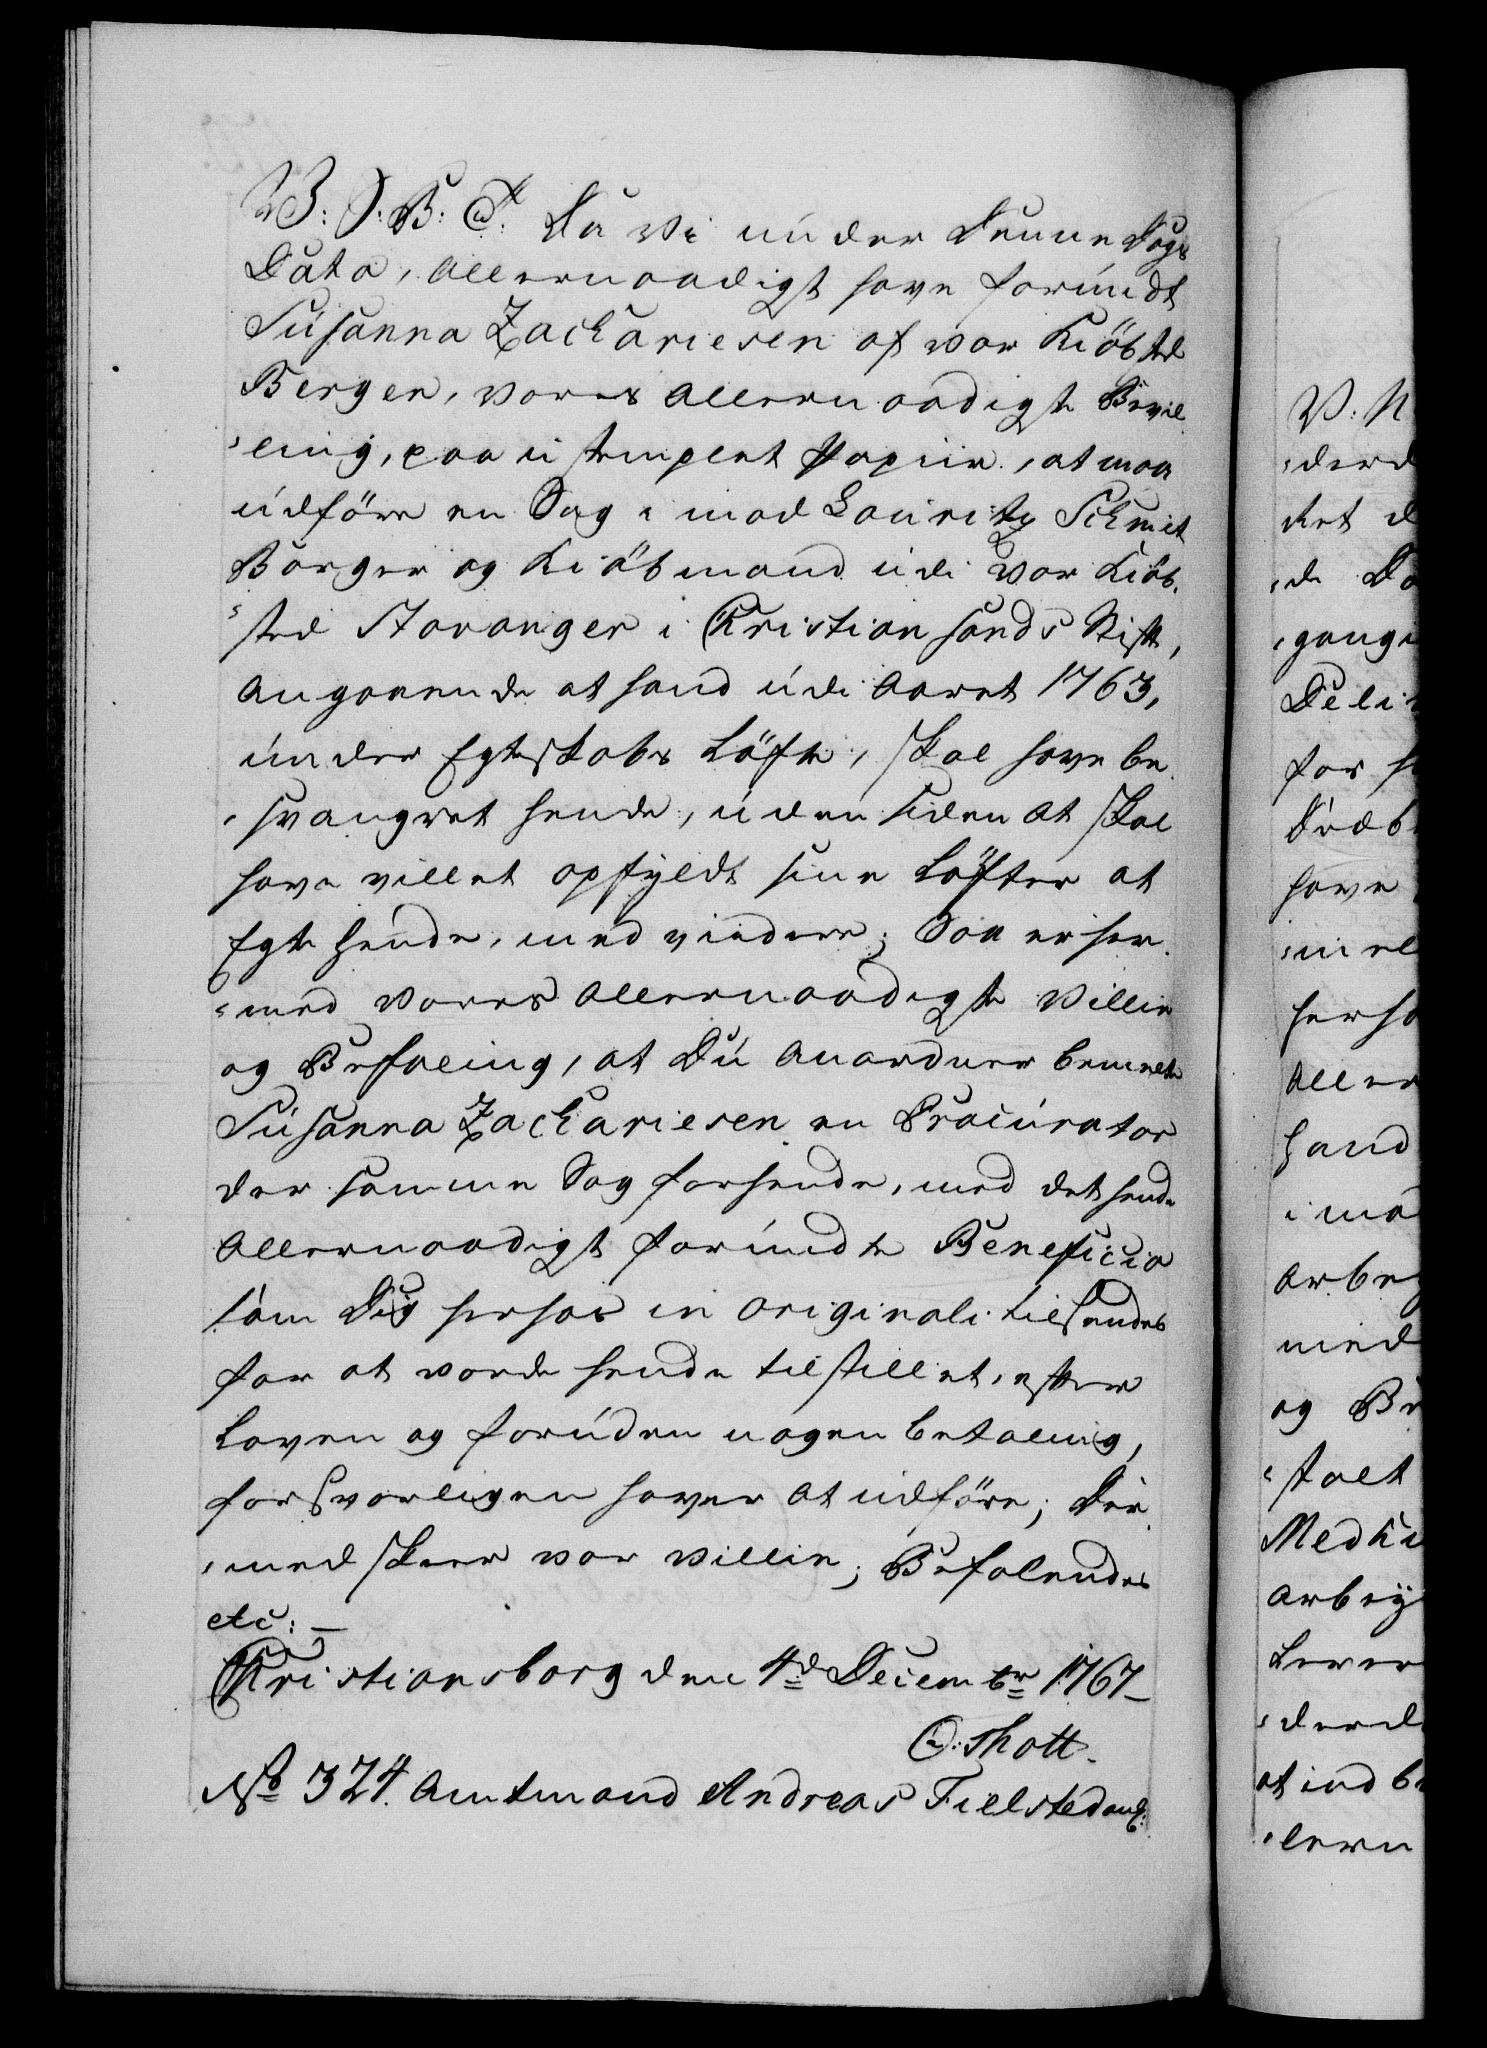 V: S: B: T: Da Vi under Denne Dags
Dato, Allernaadigst have forundt
Susanna Zachariesen af vor Kiöbsted
Bergen, vores allernaadigste Bevil
-ling, paa ustemplet Papiir, at maa
udföre en Sag imod Lauritz Schmit
Borger og Kiöbmand udi Vor Kiöb-
-sted Stavanger i Christiansands Stift,
angaaende at hand udi Aaret 1763,
under Egteskabs Löfte, skal have be
-svangret hende, uden siden at skal
have villet opfyldt sine Löfter at
Egte hende, med viidere; Saa er her
-med Vores Allernaadigste Villie
og Befaling, at Du anordner bemelte
Susanna Zachariesen en Procurator
der samme Sag for hende, med det hende
Allernaadigst forundte Beneficio
som Dig herhos in originali tilsendes
for at vorde hende tilstillet, efter
Loven og foruden nogen betaling,
forsvarligen haver at udföre; Der
-med skeer vor Villie; Befalendes
etc: —
Christiansborg den 4d Decembr 1767-
O: Thott.
No 324. Amtmand Andreas Fielsted ang:
V. N
-derd
ket d
-de Da
-gangi
Deli
for h
Dræb
have
-mel
herho
Aller
hand
imod
Arbej
med
og Be
-stalt
Medhi
Arbeij
Lever
-derd
at indb
-lern